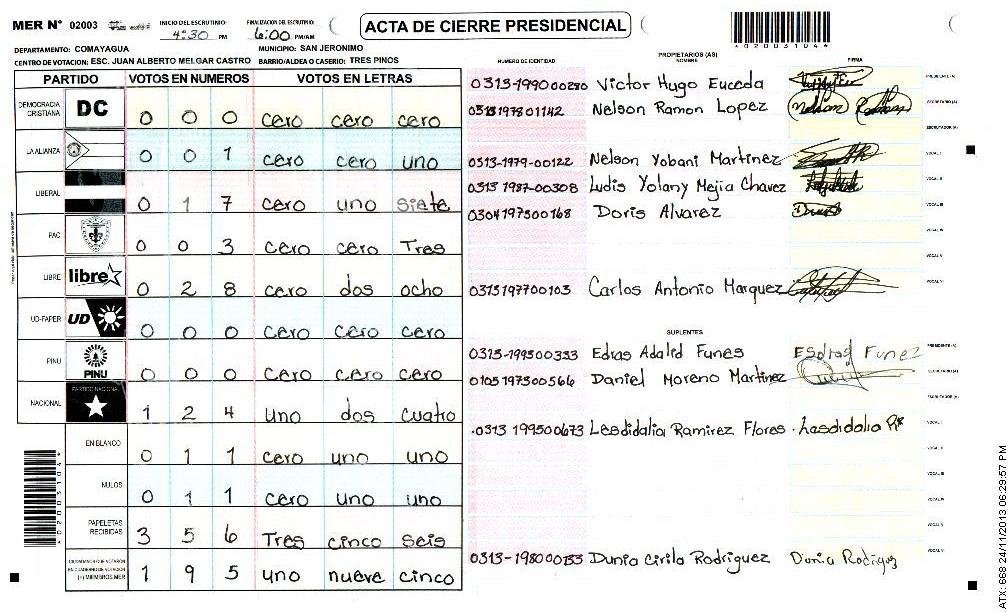 MER N° 02003 INICIO DEL ESCRUTINIO: 4:30 PM FINALIZACION DEL ESCRUTINIO: 6:00 PM/AM
ACTA DE CIERRE PRESIDENCIAL
*02003104*
DEPARTAMENTO: COMAYAGUA MUNICIPIO: SAN JERONIMO
CENTRO DE VOTACION: ESC. JUAN ALBERTO MELGAR CASTRO BARRIO/ALDEA O CASERIO: TRES PINOS
PARTIDO VOTOS EN NUMEROS VOTOS EN LETRAS
DEMOCRACIA CRISTIANA DC 0 0 0 cero cero cero
LA ALIANZA 0 0 1 cero cero uno
LIBERAL 0 1 7 cero uno siete
PAC 0 0 3 cero cero Tres
LIBRE libre 0 2 8 cero dos ocho
UD-FAPER UD 0 0 0 cero cero cero
PINU PINU 0 0 0 cero cero cero
NACIONAL PARTIDO NACIONAL 1 2 4 uno dos cuatro
EN BLANCO 0 1 1 cero uno uno
NULOS 0 1 1 cero uno uno
PAPELETAS RECIBIDAS 3 5 6 Tres cinco seis
CIUDADANOS QUE VOTARON EN CUADERNO DE VOTACION (+) MIEMBROS MER 1 9 5 uno nueve cinco
*02003104*
PROPIETARIOS (AS)
NUMERO DE IDENTIDAD NOMBRE FIRMA
0313-1990000280 Victor Hugo Euceda PRESIDENTE (A)
0313197801142 Nelson Ramon Lopez Nelson Ramon SECRETARIO (A)
ESCRUTADOR (A)
0313-1979-00122 Nelson Yobani Martinez VOCAL I
0313 1987-00308 Ludis Yolany Mejia Chavez VOCAL II
0304197500168 Doris Alvarez VOCAL III
VOCAL IV
VOCAL V
0313197700103 Carlos Antonio Marquez VOCAL VI
SUPLENTES
0313-199500333 Edras Adalid Funes Esdras Funez PRESIDENTE (A)
0105197300566 Daniel Moreno Martinez SECRETARIO (A)
ESCRUTADOR (A)
0313 199500673 Lesdidalia Ramirez Flores Lesdidalia VOCAL I
VOCAL II
VOCAL III
VOCAL IV
VOCAL V
0313-198000133 Dunia Cirila Rodriguez Dunia Rodriguez VOCAL VI
ATX: 668 24/11/2013 06:29:57 PM